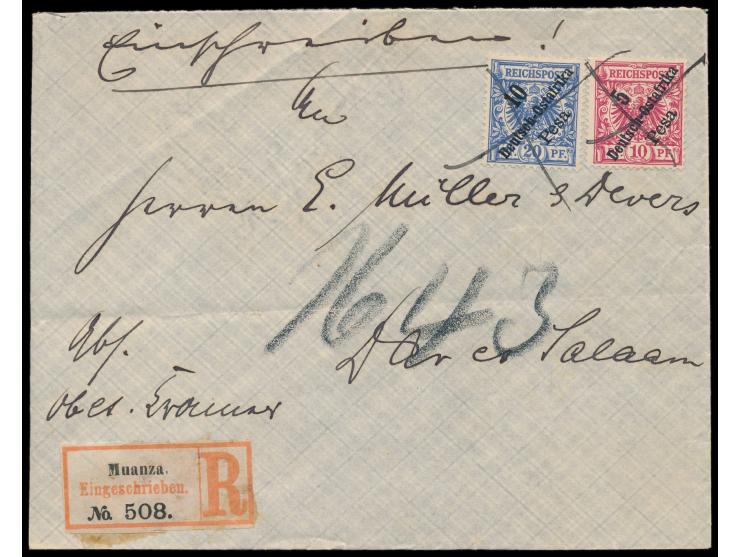 Einschreiben!
REICHSPOST REICHSPOST
10 Deutsch-Ostafrika Pesa
5 Deutsch-Ostafrika Pesa
20 PF. 10 PF.
An
Herren E. Müller & Devers
1643
Dar es Salaam
Abs.
Muanza.
Eingeschrieben.
R
No. 508.